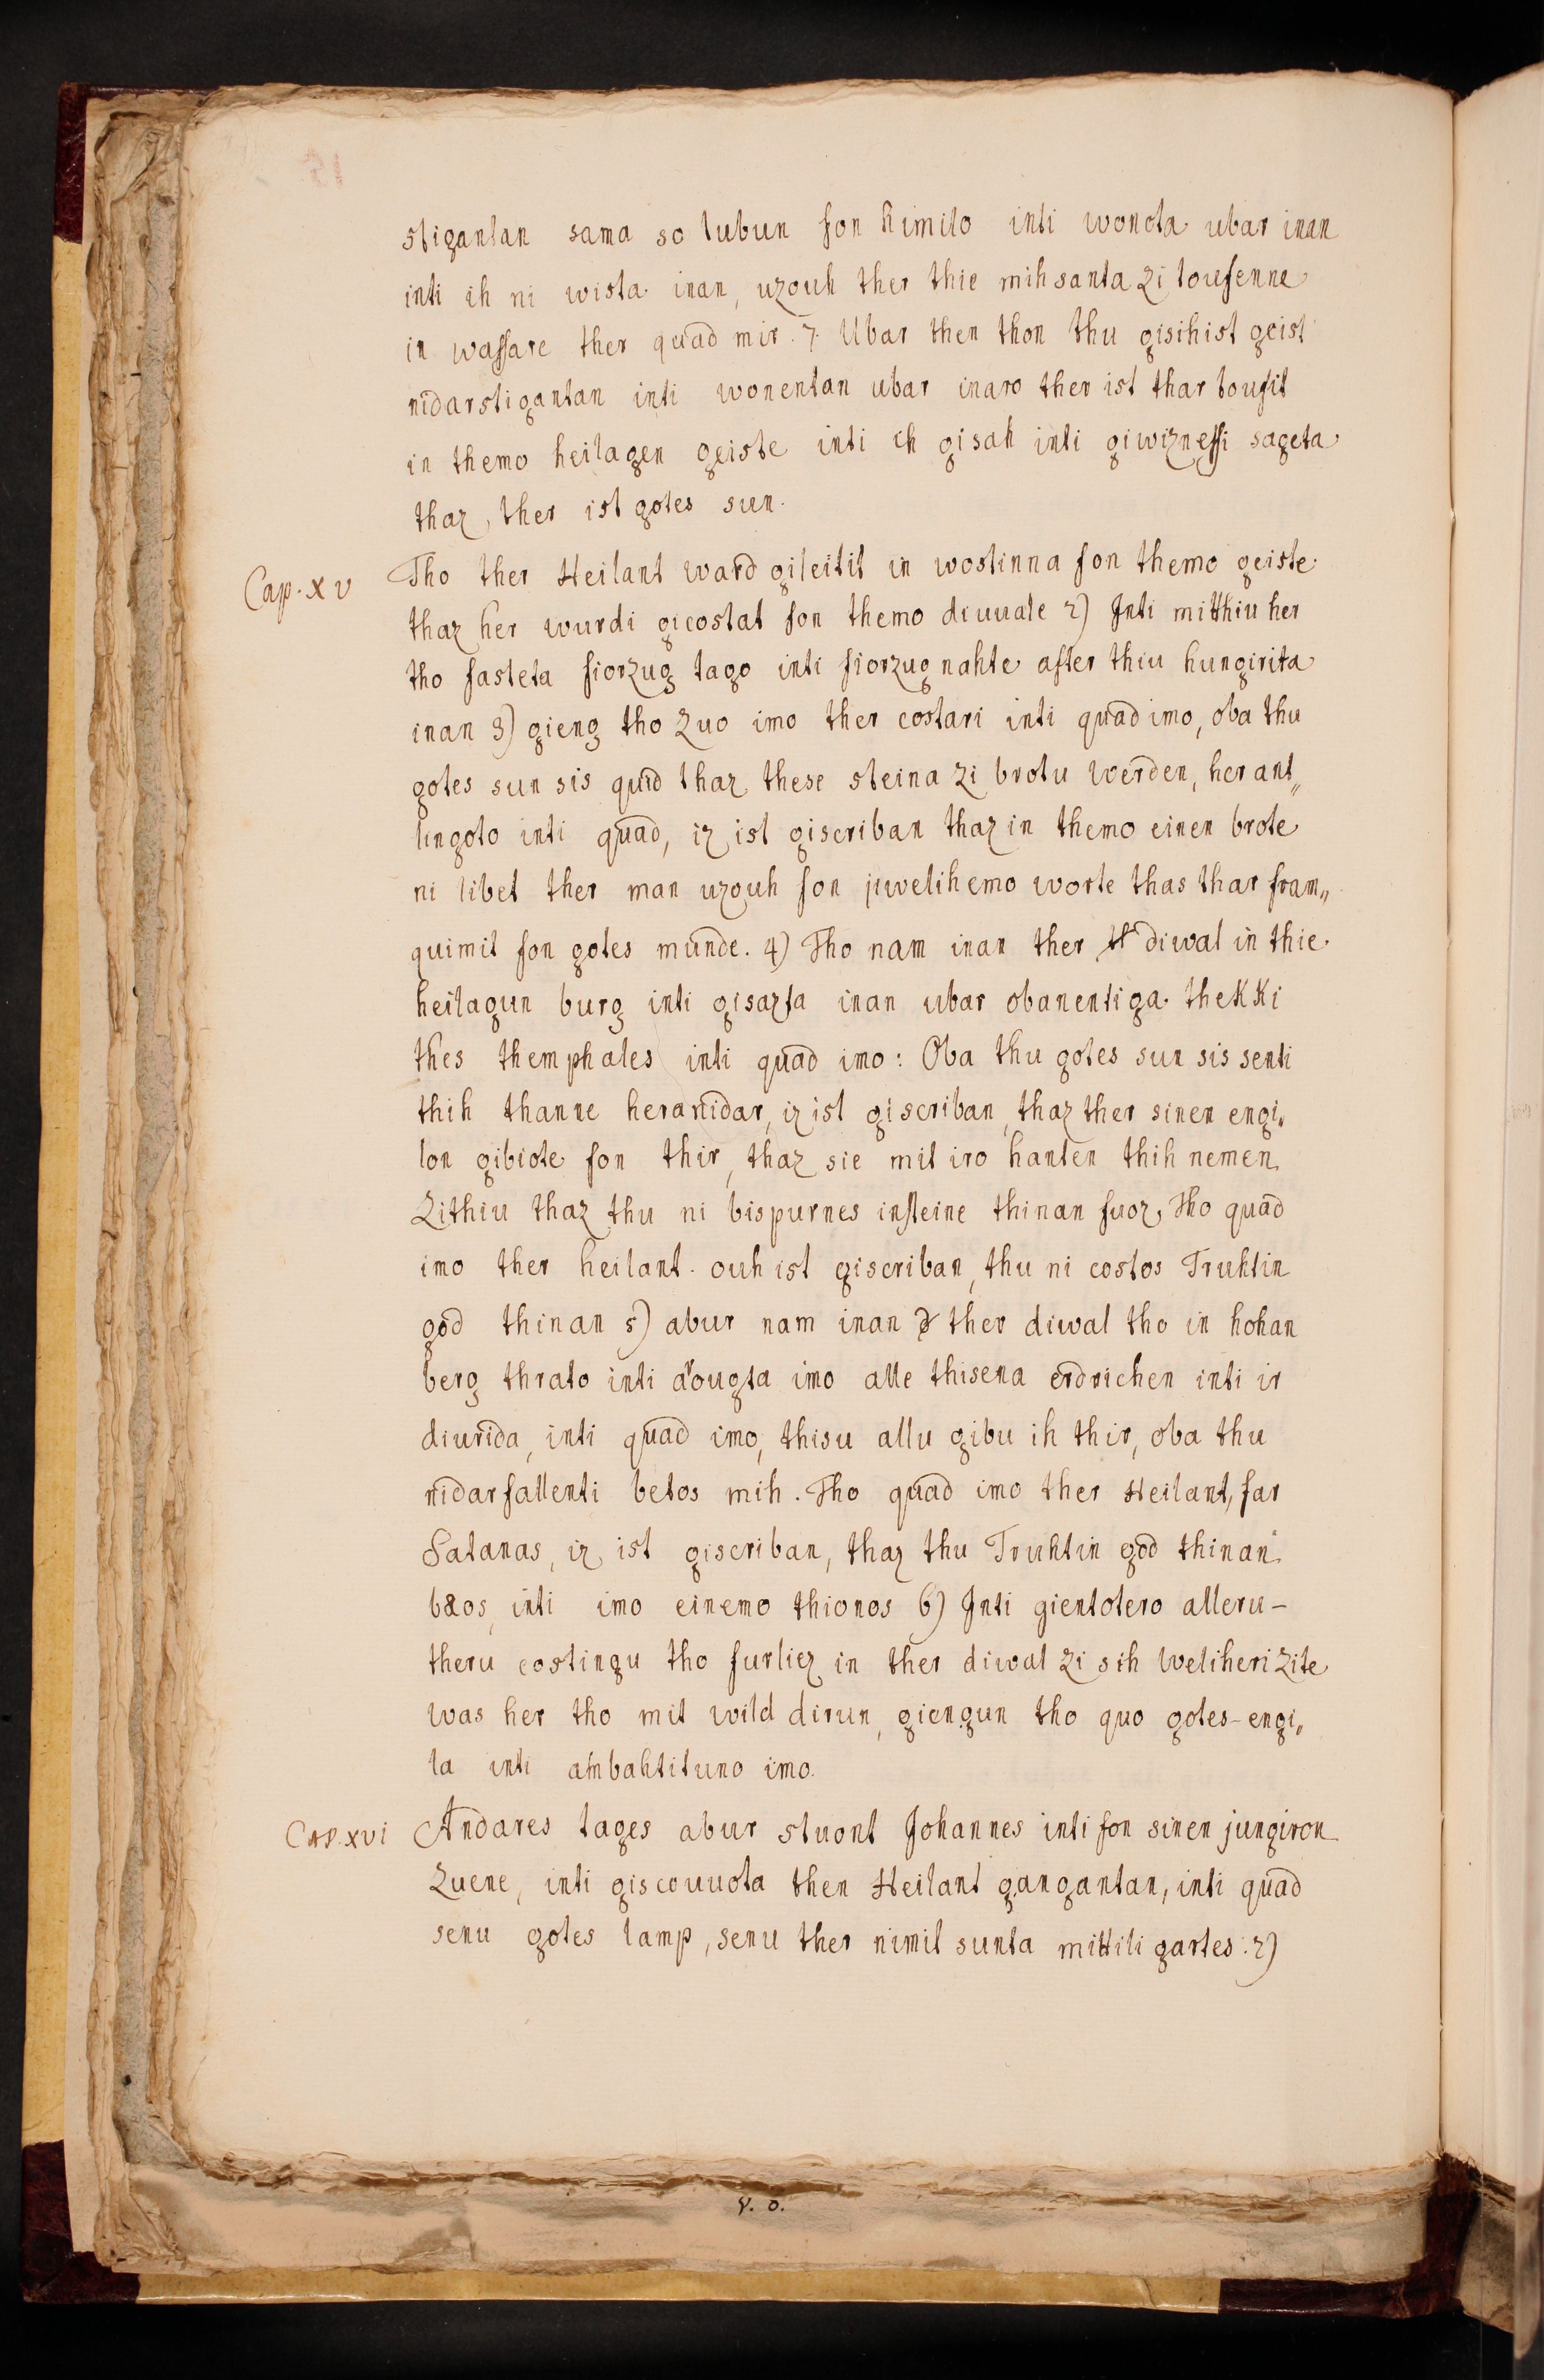 stigantan sama so tubun fon himilo inti wonota ubar inan
inti ih ni wista inan, uzouh ther thie mih santa zi toufenne
in wassare ther quad mir. 7. Ubar then thon thu gisihist geist
nidarstigantan inti wonentan ubar inaro ther ist thar toufit
in themo heilagen geiste inti ih gisah inti giwiznessi sageta
thaz, ther ist gotes sun.
Cap. XV Tho ther Heilant ward gileitit in wostinna fon themo geiste
thaz her wurdi gicostat fon themo diuuale 2) Inti mitthiu her
tho fasteta fiorzug tago inti fiorzug nahte after thiu hungirita
inan 3) gieng tho zuo imo ther costari inti quad imo, oba thu
gotes sun sis quid thaz these steina zi brotu werden, her ant„
lingoto inti quad, iz ist giscriban thaz in themo einen brote
ni libet ther man uzouh fon jiwelihemo worte thas thar fram„
quimit fon gotes munde. 4) Tho nam inan ther diwal in thie
heilagun burg inti gisazta inan ubar obanentiga thekki
thes themphales inti quad imo: Oba thu gotes sun sis senti
thih thanne heranidar, iz ist giscriban, thaz ther sinen engi„
lon gibiote fon thir, thaz sie mit iro hanten thih nemen
zithiu thaz thu ni bispurnes insteine thinan fuoz, Tho quad
imo ther heilant. ouh ist giscriban, thu ni costos Truhtin
god thinan 5) abur nam inan ther diwal tho in hohan
berg thrato inti arougta imo alle thisena erdrichen inti ir
diurida, inti quad imo, thisu allu gibu ih thir, oba thu
nidarfallenti betos mih. Tho quad imo ther Heilant, far
Satanas, iz ist giscriban, thaz thu Truhtin god thinan
b&os, inti imo einemo thionos 6) Inti gientotero alleru-
theru costingu tho furliez in ther diwal zi sih weliheri zite
was her tho mit wild dirun, giengun tho quo gotes-engi„
la inti ambahtituno imo.
Cap. XVI Andares tages abur stuont Johannes inti fon sinen jungiron
zuene, inti giscouuota then Heilant gangantan, inti quad
senu gotes lamp, senu ther nimit sunta mittiligartes: 2)
v. o.